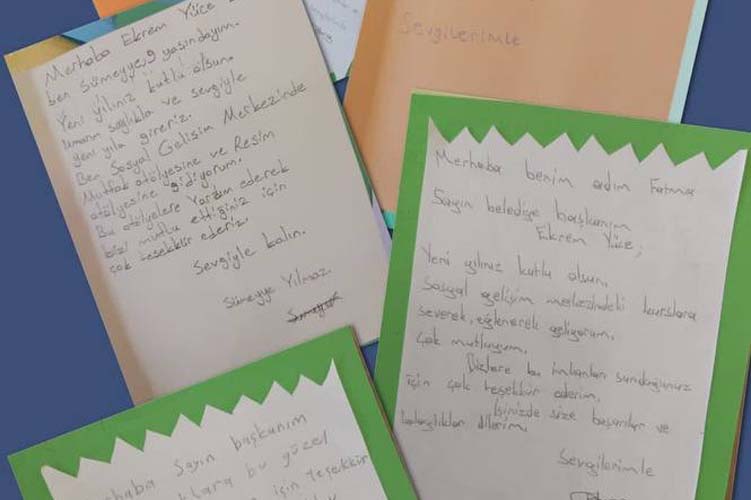 Merhaba Ekrem Yüce
ben Sümeyye, 9 yaşındayım.
Yeni yılınız kutlu olsun.
Umarım sağlıkla ve sevgiyle
yeni yıla gireriz.
Ben Sosyal Gelişim Merkezinde
Mutfak atölyesine ve Resim
atölyesine gidiyorum.
Bu atölyelere Yardım ederek
bizi mutlu ettiğiniz için
çok teşekkür ederiz.
Sevgiyle kalın.
Sümeyye Yılmaz.
Sevgilerimle
Merhaba benim adım Fatma
Sayın belediye başkanım
Ekrem Yüce,
Yeni yılınız kutlu olsun.
Sosyal gelişim merkezindeki kurslara
severek, eğlenerek geliyorum.
Çok mutluyum.
Bizlere bu imkanları sunduğunuz
için çok teşekkür ederim.
İşinizde size başarılar ve
kolaylıklar dilerim.
Sevgilerimle
Sayın başkanım
bu güzel
için teşekkür